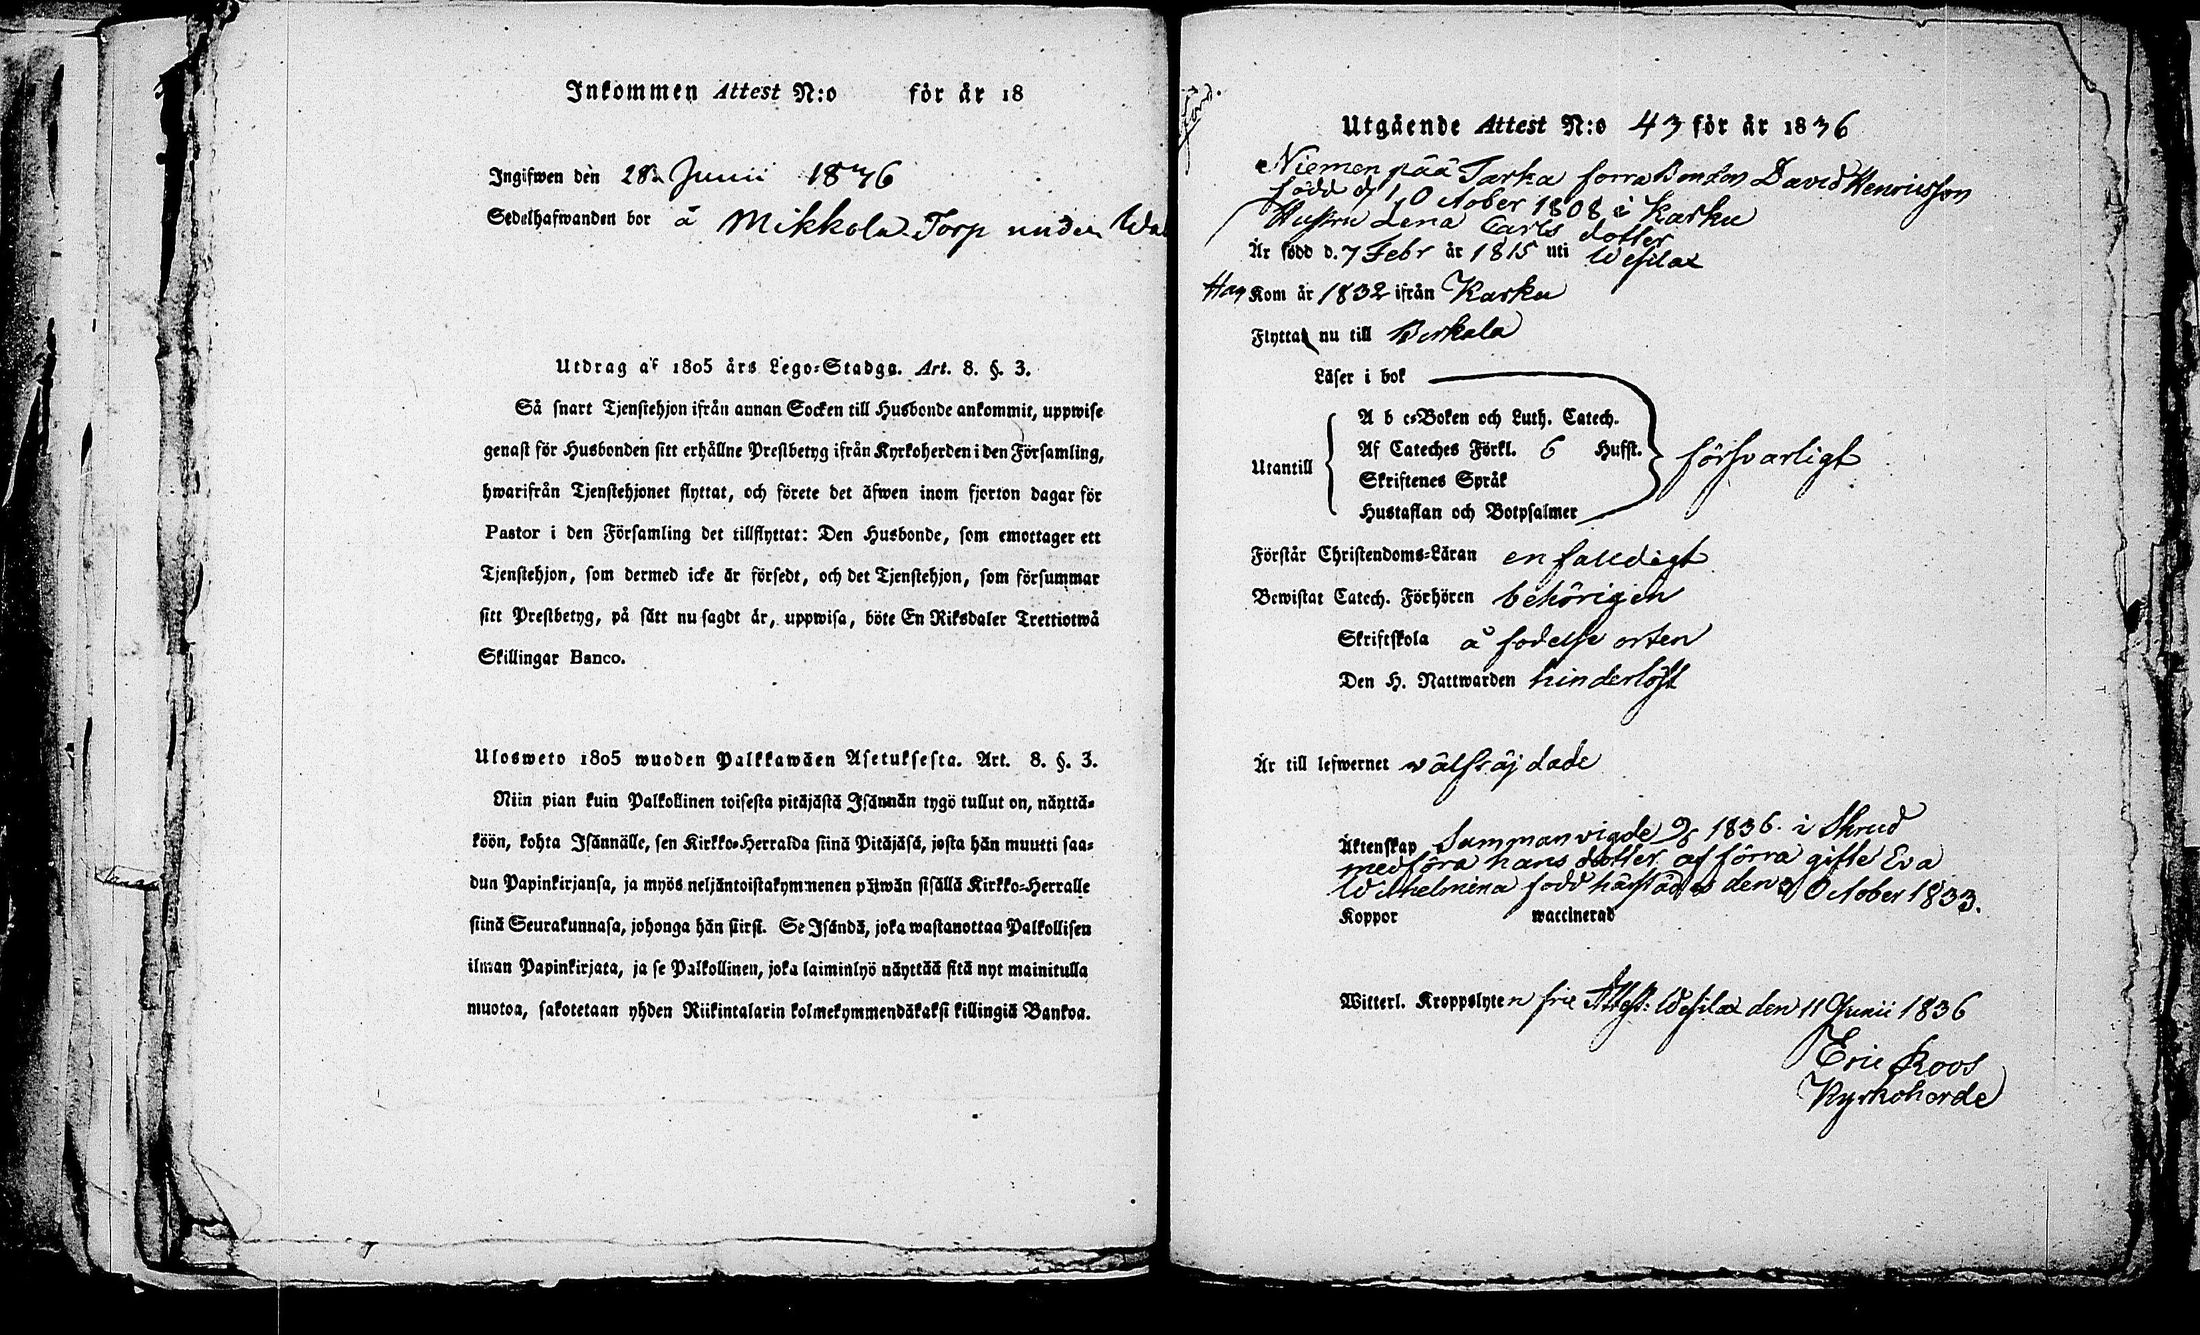 Inkommen Attest N:o för år 18
Ingifwen den 28 Junii 1836
Sedelhafwanden bor å Mikkola Torp under
Utdrag af 1805 års Lego-Stadga. Art. 8. §. 3.
Så snart Tjenstehjon ifrån annan Socken till Husbonde ankommit, uppwise
genast för Husbonden sitt erhållne Prestbetyg ifrån Kyrkoherden i den Församling,
hwarifrån Tjenstehjonet flyttat, och förete det äfwen inom fjorton dagar för
Pastor i den Församling det tillflyttat: Den Husbonde, som emottager ett
Tjenstehjon, som dermed icke är försedt, och det Tjenstehjon, som försummar
sitt Prestbetyg, på sätt nu sagdt är, uppwisa, böte En Riksdaler Trettiotwå
Skillingar Banco.
Ulosweto 1805 wuoden Palkkawäen Asetuksesta. Art. 8. §. 3.
Niin pian kuin Palkollinen toisesta pitäjästä Isännän tygö tullut on, näyttä-
köön, kohta Isännälle, sen Kirkko-Herralda siinä Pitäjäsä, josta hän muutti saa-
dun Papinkirjansa, ja myös neljäntoistakymmenen päiwän sisällä Kirkko-Herralle
siinä Seurakunnasa, johonga hän siirst. Se Isändä, joka wastanottaa Palkollisen
ilman Papinkirjata, ja se Palkollinen, joka laiminlyö näyttää sitä nyt mainitulla
muotoa, sakotetaan yhden Riikintalarin kolmekymmendäkaksi killingiä Bankoa.
Utgående Attest N:o 43 för år 1836
Niemenpää Tarka förra Bonden David Henricsson
född d 1 October 1808 i Karku
Hustru Lena Carls dotter
Är född d. 7 Febr år 1815 uti Wesilax
Han Kom år 1832 ifrån Karku
Flyttat nu till Birkala
Läser i bok
A b c-Boken och Luth. Catech.
Utantill Af Cateches Förkl. 6 Hufst. försvarligt
Skriftenes Språk
Hustaflan och Botpsalmer
Förstår Christendoms-Läran enfalldigt
Bewistat Catech. Förhören behörigen
Skriftskola å födelse orten
Den H. Nattwarden hinderlöst
Är till lefwernet välfräjdade
Äktenskap Sammanvigde 1836. i Skrud
medföra hans dotter af förra gifte Eva
Wilhelmina född härstädes den October 1833.
Koppor waccinerad
Witterl. Kroppslyten frie Attest: Wesilax den 11 Junii 1836
Eric Roos
Kyrkoherde